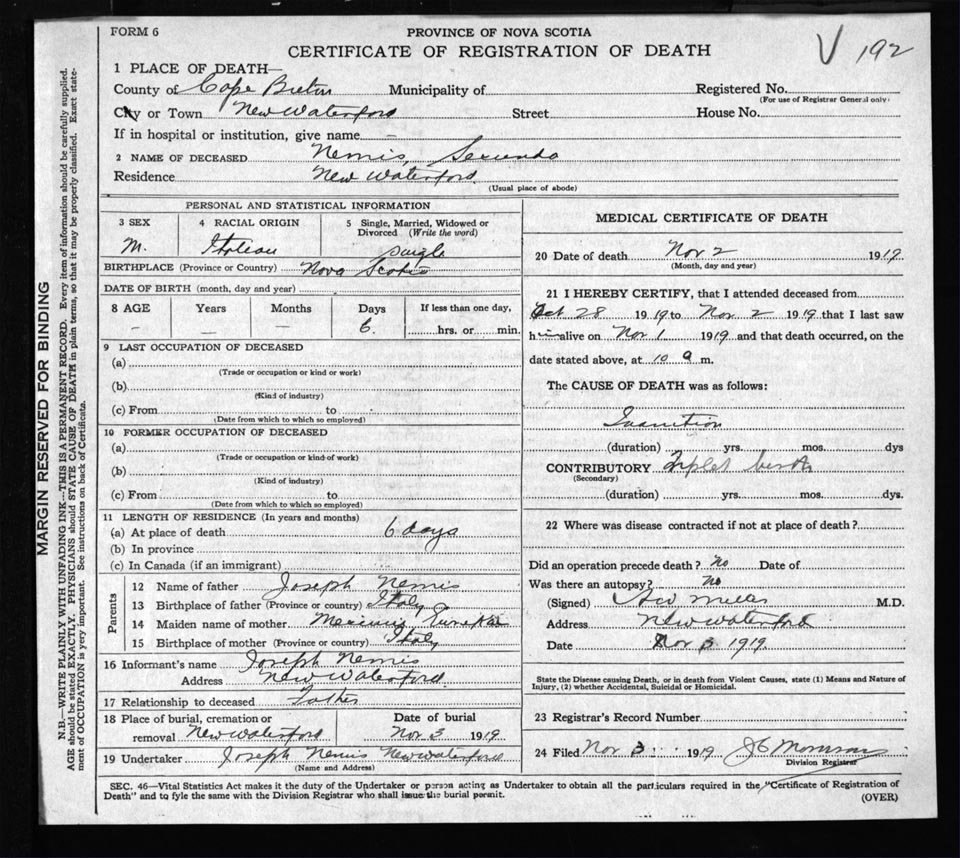 FORM 6
PROVINCE OF NOVA SCOTIA
CERTIFICATE OF REGISTRATION OF DEATH
V 192
1 PLACE OF DEATH—
County of Cape Breton Municipality of Registered No.
(For use of Registrar General only)
City or Town New Waterford Street House No.
If in hospital or institution, give name —
2 NAME OF DECEASED Nemis, Secundo
Residence New Waterford.
(Usual place of abode)
PERSONAL AND STATISTICAL INFORMATION
3 SEX
M.
4 RACIAL ORIGIN
Italian
5 Single, Married, Widowed or
Divorced (Write the word)
single
BIRTHPLACE (Province or Country) Nova Scotia
DATE OF BIRTH (month, day and year)
8 AGE Years Months Days If less than one day,
— — — 6. hrs. or min.
9 LAST OCCUPATION OF DECEASED
(a)
(Trade or occupation or kind or work)
(b)
(Kind of industry)
(c) From to
(Date from which to which so employed)
10 FORMER OCCUPATION OF DECEASED
(a)
(Trade or occupation or kind of work)
(b)
(Kind of industry)
(c) From to
(Date from which to which so employed)
11 LENGTH OF RESIDENCE (In years and months)
(a) At place of death 6 days
(b) In province
(c) In Canada (if an immigrant)
Parents
12 Name of father Joseph Nemis
13 Birthplace of father (Province or country) Italy
14 Maiden name of mother
15 Birthplace of mother (Province or country) Italy
16 Informant's name Joseph Nemis
Address New Waterford.
17 Relationship to deceased Father
18 Place of burial, cremation or
removal New Waterford
Date of burial
Nov 3 1919
19 Undertaker Joseph Nemis New Waterford
(Name and Address)
MEDICAL CERTIFICATE OF DEATH
20 Date of death Nov 2 1919
(Month, day and year)
21 I HEREBY CERTIFY, that I attended deceased from
Oct 28 1919 to Nov 2 1919 that I last saw
him alive on Nov 1 1919 and that death occurred, on the
date stated above, at 10 a m.
The CAUSE OF DEATH was as follows:
Inanition
(duration) yrs. mos. dys
CONTRIBUTORY Triplet birth
(Secondary)
(duration) yrs. mos. dys.
22 Where was disease contracted if not at place of death?
Did an operation precede death? No Date of
Was there an autopsy? No
(Signed) Miller M.D.
Address New Waterford
Date Nov 3 1919.
State the Disease causing Death, or in death from Violent Causes, state (1) Means and Nature of
Injury, (2) whether Accidental, Suicidal or Homicidal.
23 Registrar's Record Number
24 Filed Nov 3 1919 J C Morrison
Division Registrar
SEC. 46—Vital Statistics Act makes it the duty of the Undertaker or person acting as Undertaker to obtain all the particulars required in the "Certificate of Registration of
Death" and to fyle the same with the Division Registrar who shall issue the burial permit.
(OVER)
MARGIN RESERVED FOR BINDING
N.B.—WRITE PLAINLY WITH UNFADING INK—THIS IS A PERMANENT RECORD. Every item of information should be carefully supplied.
AGE should be stated EXACTLY. PHYSICIANS should STATE CAUSE OF DEATH in plain terms, so that it may be properly classified. Exact state-
ment of OCCUPATION is very important. See instructions on back of Certificate.